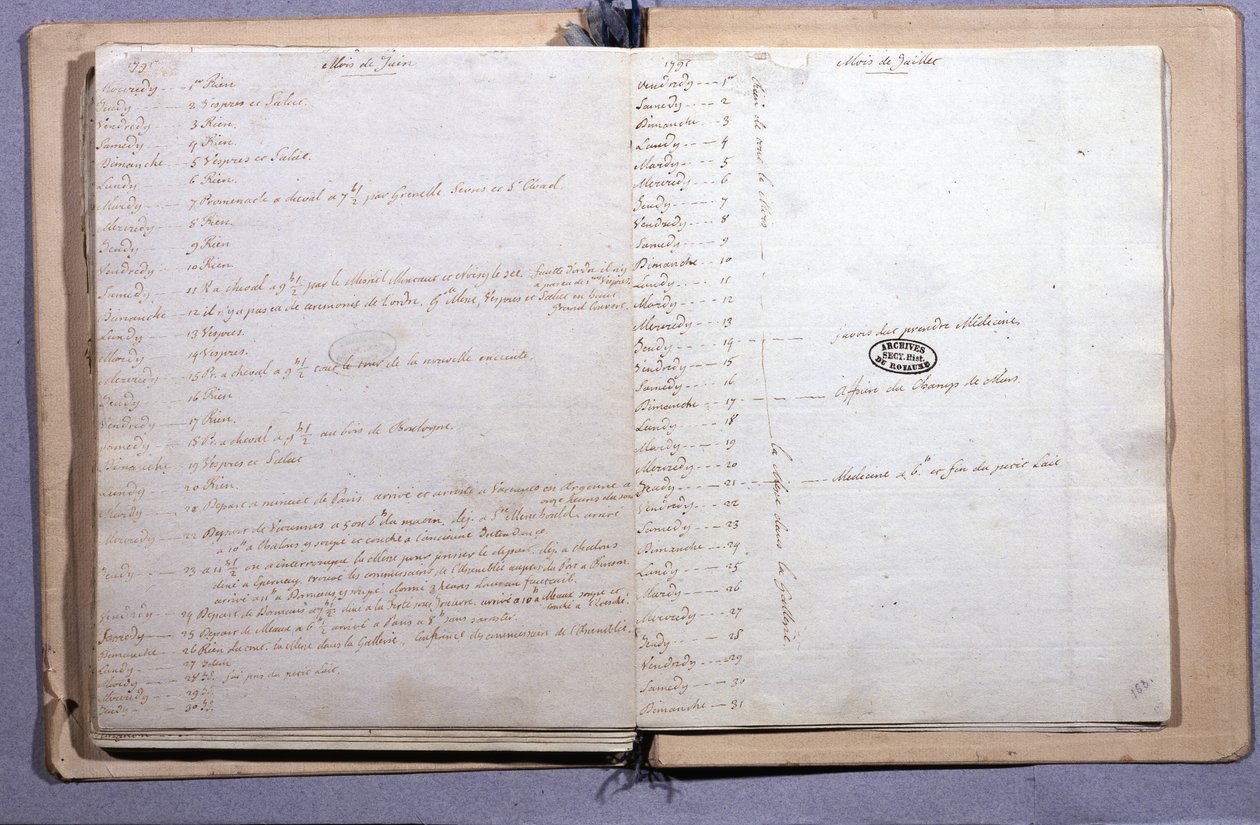 1791 Mois de Juin
Mercredy 1er Rien
Jeudy 2 Vespres et Salut.
Vendredy 3 Rien.
Samedy 4 Rien.
Dimanche 5 Vespres et Salut.
Lundy 6 Rien.
Mardy 7 Promenade a cheval a 7h 1/2 par Grenelle Sevres et St Cloud
Mercredy 8 Rien.
Jeudy 9 Rien
Vendredy 10 Rien
Samedy 11 a cheval a 9h 1/2 par le Mesnil et Noisy le sec
Dimanche 12 il n'y a pas eu de ceremonies de l'ordre, Gde Messe, Vespres et Salut en
Grand Couvert.
Lundy 13 Vespres.
Mardy 14 Vespres.
Mercredy 15 Pr. a cheval a 9h 1/2 tout le tour de la nouvelle enceinte.
Jeudy 16 Rien
Vendredy 17 Rien.
Samedy 18 Pr. a cheval a 9h 1/2 au bois de Boulogne.
Dimanche 19 Vespres et Salut
Lundy 20 Rien.
Mardy 21 Depart a minuit de Paris arrivé et arresté a Varennes en Argonne a
onze heures du soir
Mercredy 22 Depart de Varennes a 5 ou 6h du matin, dej. a Ste Menehould, arrivé
a 10h a Chalons y soupé et couché a l'ancienne Intendance
Jeudy 23 a 11h 1/2 on a interrompu la Messe pour presser le depart, dej. a Chalons
diné a Epernay, trouvé les commissaires de l'Assemblée auprès du Port a Binson
arrivé a 11h a Dormans y soupé, dormi 3 heures dans un fauteuil.
Vendredy 24 Depart de Dormans a 7h 1/2 diné a la Ferté sous Jouarre, arrivé a 10h a Meaux soupé et
couché a l'Evesché.
Samedy 25 Depart de Meaux a 6h 1/2 arrivé a Paris a 8h sans s'arrester.
Dimanche 26 Rien du tout, la Messe dans la Gallerie, Conference des commissaires de l'Assemblée.
Lundy 27 Idem
Mardy 28 Id. j'ai pris du petit Lait.
Mercredy 29 Id.
Jeudy 30 Id.
1791 Mois de Juillet
Vendredy 1er
Samedy 2
Dimanche 3
Lundy 4
Mardy 5
Mercredy 6
Jeudy 7
Vendredy 8
Samedy 9
Dimanche 10
Lundy 11
Mardy 12
Mercredy 13
Jeudy 14 j'avois du prendre Médecine.
Vendredy 15
Samedy 16
Dimanche 17 Affaire du Champs de Mars.
Lundy 18
Mardy 19
Mercredy 20
Jeudy 21 Medecine a 6h et fin du petit Lait
Vendredy 22
Samedy 23
Dimanche 24
Lundy 25
Mardy 26
Mercredy 27
Jeudy 28
Vendredy 29
Samedy 30
Dimanche 31
Rien de tout le Mois la Messe dans la Gallerie.
ARCHIVES
SECT. Hist.
DU ROYAUME